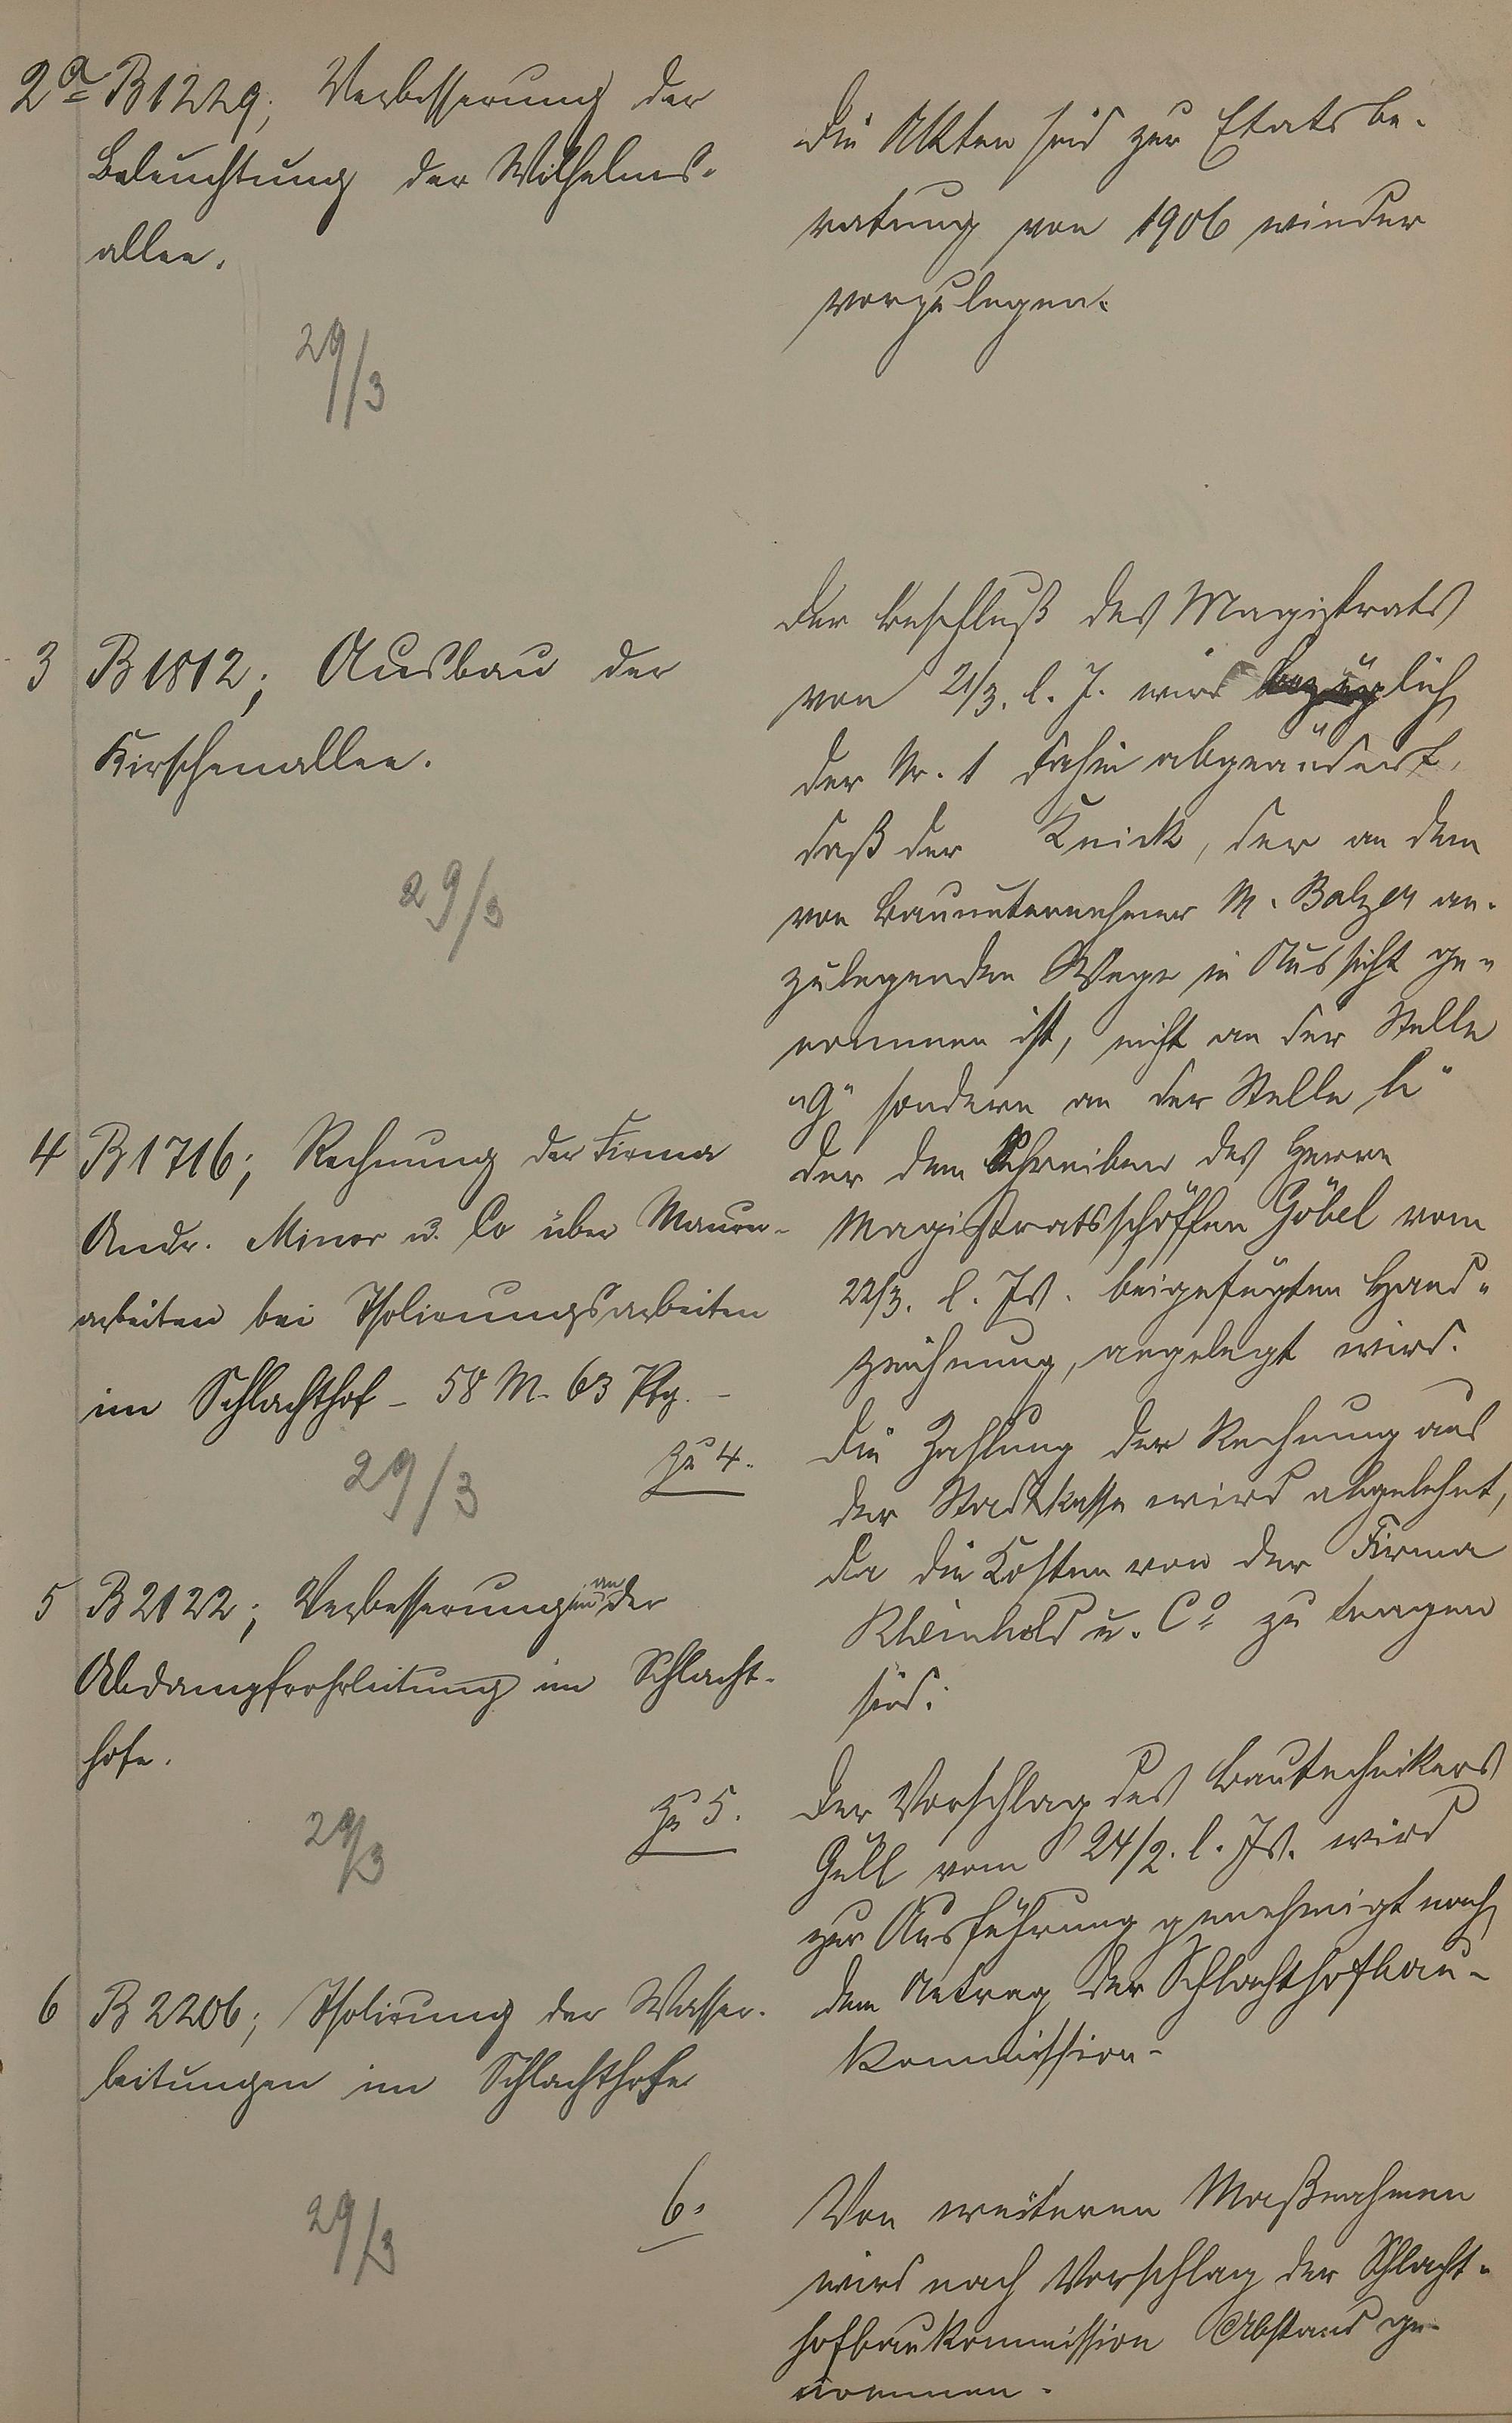 2a B1229; Verbesserung der
Beleuchtung der Wilhelms-
allee.
29/3
die Akten sind zur Etatsbe-
ratung von 1906 wieder
vorzulegen.
3 B1812; Ausbau der
Kirschenallee.
29/3
der Beschluß des Magistrats
von 21/3. l. J. wird bezüglich
der Nr. 1 dahin abgeändert,
daß der Knick, der an dem
von Bauunternehmer M. Balzer an-
zulegenden Wege in Aussicht ge-
nommen ist, nicht an der Stelle
"g" sondern an der Stelle "h"
der dem Schreiben des Herrn
Magistratsschöffen Göbel vom
22/3. l. Js. beigefügten Hand-
zeichnung, angelegt wird.
4 B1716; Rechnung der Firma
Andr. Minor u. Co über Maurer-
arbeiten bei Isolirungsarbeiten
im Schlachthof - 58 M. 63 Pfg. -
29/3
Zu 4.
die Zahlung der Rechnung aus
der Stadtkasse wird abgelehnt,
da die Kosten von der Firma
Rheinhold u. Co zu tragen
sind.
5 B2122; Verbesserungen an der
Abdampfrohrleitung im Schlacht-
hofe.
29/3
Zu 5.
der Vorschlag des Bautechnikers
Gull vom 24/2. l. Js. wird
zur Ausführung genehmigt nach
dem Antrag der Schlachthofbau-
kommission.
6 B2206; Isolirung der Wasser-
leitungen im Schlachthofe
29/3
6.
Von weiteren Maßnahmen
wird nach Vorschlag der Schlacht-
hofbaukommission Abstand ge-
nommen.